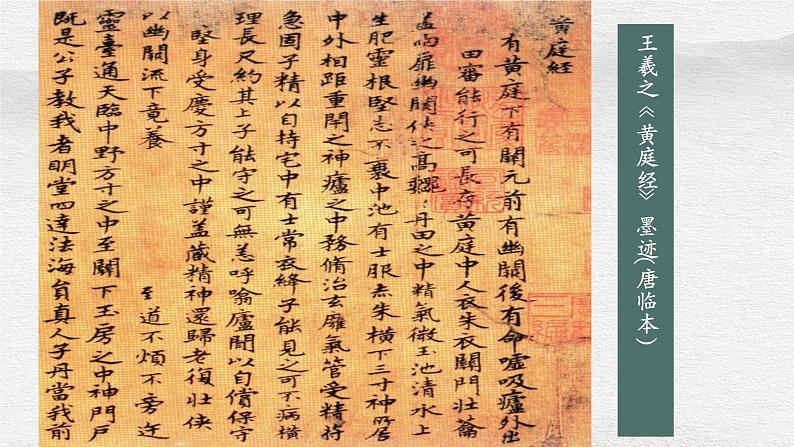 王羲之《黄庭经》墨迹(唐临本)
黄庭經
有黄庭下有關元前有幽闕後有命嘘吸廬外出
田審能行之可長存黄庭中人衣朱衣關門壮籥
盖兩扉幽闕俠之高巍丹田之中精氣微玉池清水上
生肥靈根堅志不衰中池有士服赤朱横下三寸神所居
中外相距重閇之神廬之中務脩治玄廱氣管受精符
急固子精以自持宅中有士常衣絳子能見之可不病横
理長尺約其上子能守之可無恙呼噏廬間以自償保守
堅身受慶方寸之中謹盖藏精神還歸老復壮俠
以幽闕流下竟養 至道不煩不旁迕
靈臺通天臨中野方寸之中至關下玉房之中神門户
既是公子教我者明堂四達法海員真人子丹當我前